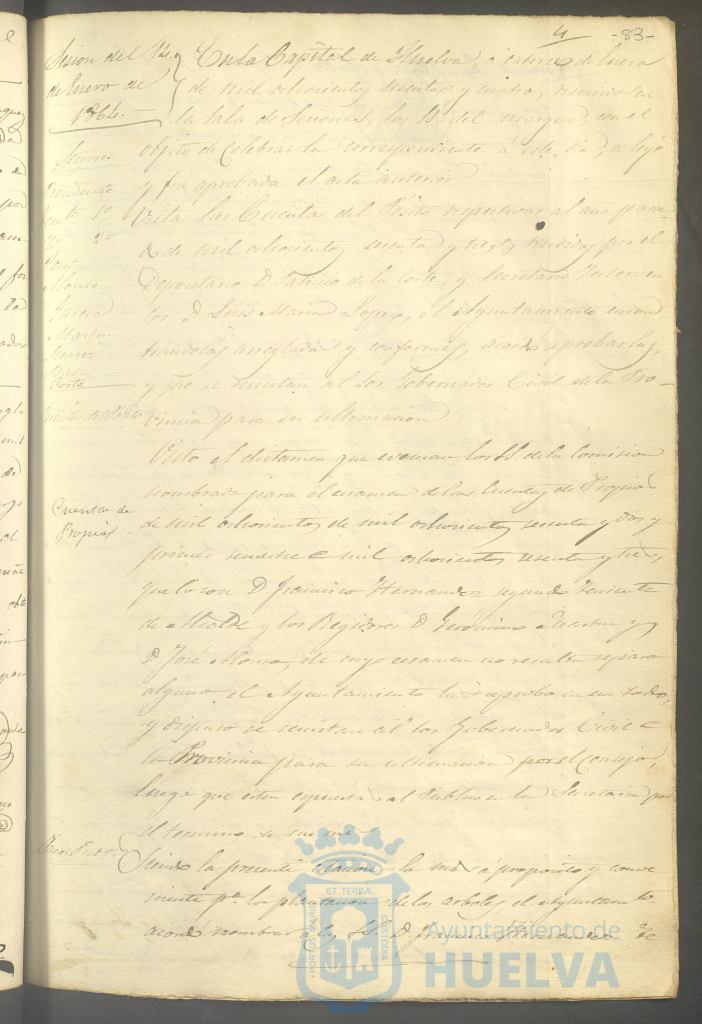 4 -83-
Sesion del 14
de Enero de
1864.
En la Capital de Huelva, a catorce de Enero
de mil ochocientos sesenta y cuatro, reunidos en
la Sala de Sesiones, los SS. del margen, con el
objeto de celebrar la correspondiente a este dia, se leyó
y fué aprobada el acta anterior.
Señores
Presidente
Tente 1º
Yd. 2º
Alonso
Garcia
Martin
Suarez
Corte
Cuentas del Posito
Vistas las Cuentas del Posito respectivas al año pasa-
do de mil ochocientos sesenta y tres, rendidas por el
Depositario D. Patricio de la Corte, y Secretario Interven
tor D. Luis Maria Lopez, el Ayuntamiento encon
trandolas arregladas y conformes, acordó aprobarlas,
y que se remitan al Sor. Gobernador Civil de la Pro-
vincia para su ultimacion.
Cuentas de
Propios
Visto el dictamen que evacuan los SS. de la Comision
nombrada para el examen de las Cuentas de Propios
de mil ochocientos de mil ochocientos sesenta y dos y
primer semestre de mil ochocientos sesenta y tres,
que lo son D. Francisco Hernandez segundo Teniente
de Alcalde y los Regidores D. Gerónimo Martin y
D. José Alonso, de cuyo examen no resulta reparo
alguno el Ayuntamiento las aprobó en un todo,
y dispuso se remitan al Sor. Gobernador Civil de
la Provincia para su ultimacion por el Consejo,
luego que esten espuestas al Publico en la Secretaria por
el termino de un mes.
Siendo la presente estacion la mas á proposito y conve
niente pª. la plantacion de los arboles el Ayuntamto.
acordó nombrar a los SS. D. Francisco Hernandez Te
PORTUS MARIS ET TERRÆ CUSTODIA
Ayuntamiento de
HUELVA